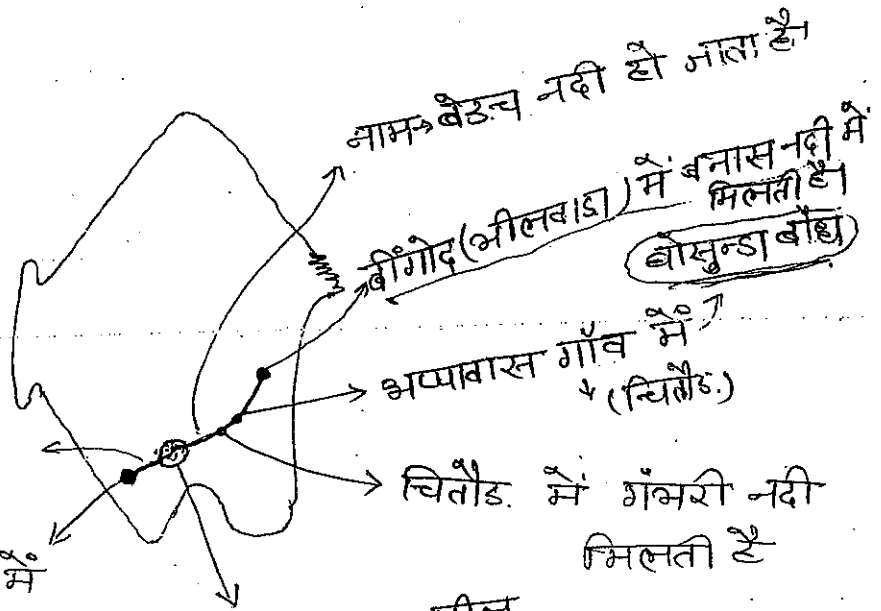 नाम→बेडच नदी हो जाता है
बींगोद (भीलवाडा) में बनास नदी में
मिलती है।
बोसुन्डा बाँध
अप्पावास गाँव में
(चितौड.)
चितौड. में गंभरी नदी
मिलती है
में